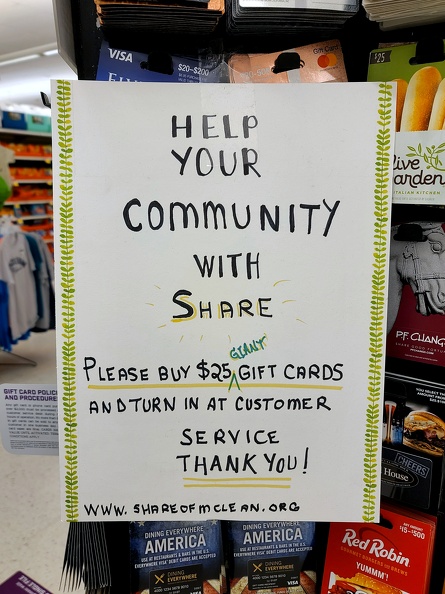 VISA
$20-$200
Gift Card
$25
HELP
YOUR
COMMUNITY
WITH
SHARE
GIANT
PLEASE BUY $25 GIFT CARDS
AND TURN IN AT CUSTOMER
SERVICE
THANK YOU!
WWW.SHAREOFMCLEAN.ORG
live
arden
ITALIAN KITCHEN
P.F. CHANG
CHEERS
House
GIFT CARD POLIC
AND PROCEDURE
DINING EVERYWHERE
AMERICA
USE AT RESTAURANTS & BARS IN THE U.S.
EVERYWHERE VISA DEBIT CARDS ARE ACCEPTED
DINING
EVERYWHERE
DINING EVERYWHERE
AMERICA
USE AT RESTAURANTS & BARS IN THE U.S.
EVERYWHERE VISA DEBIT CARDS ARE ACCEPTED
DINING
EVERYWHERE
$15-$500
Red Robin
GOURMET BURGERS AND BREWS
YUMMM